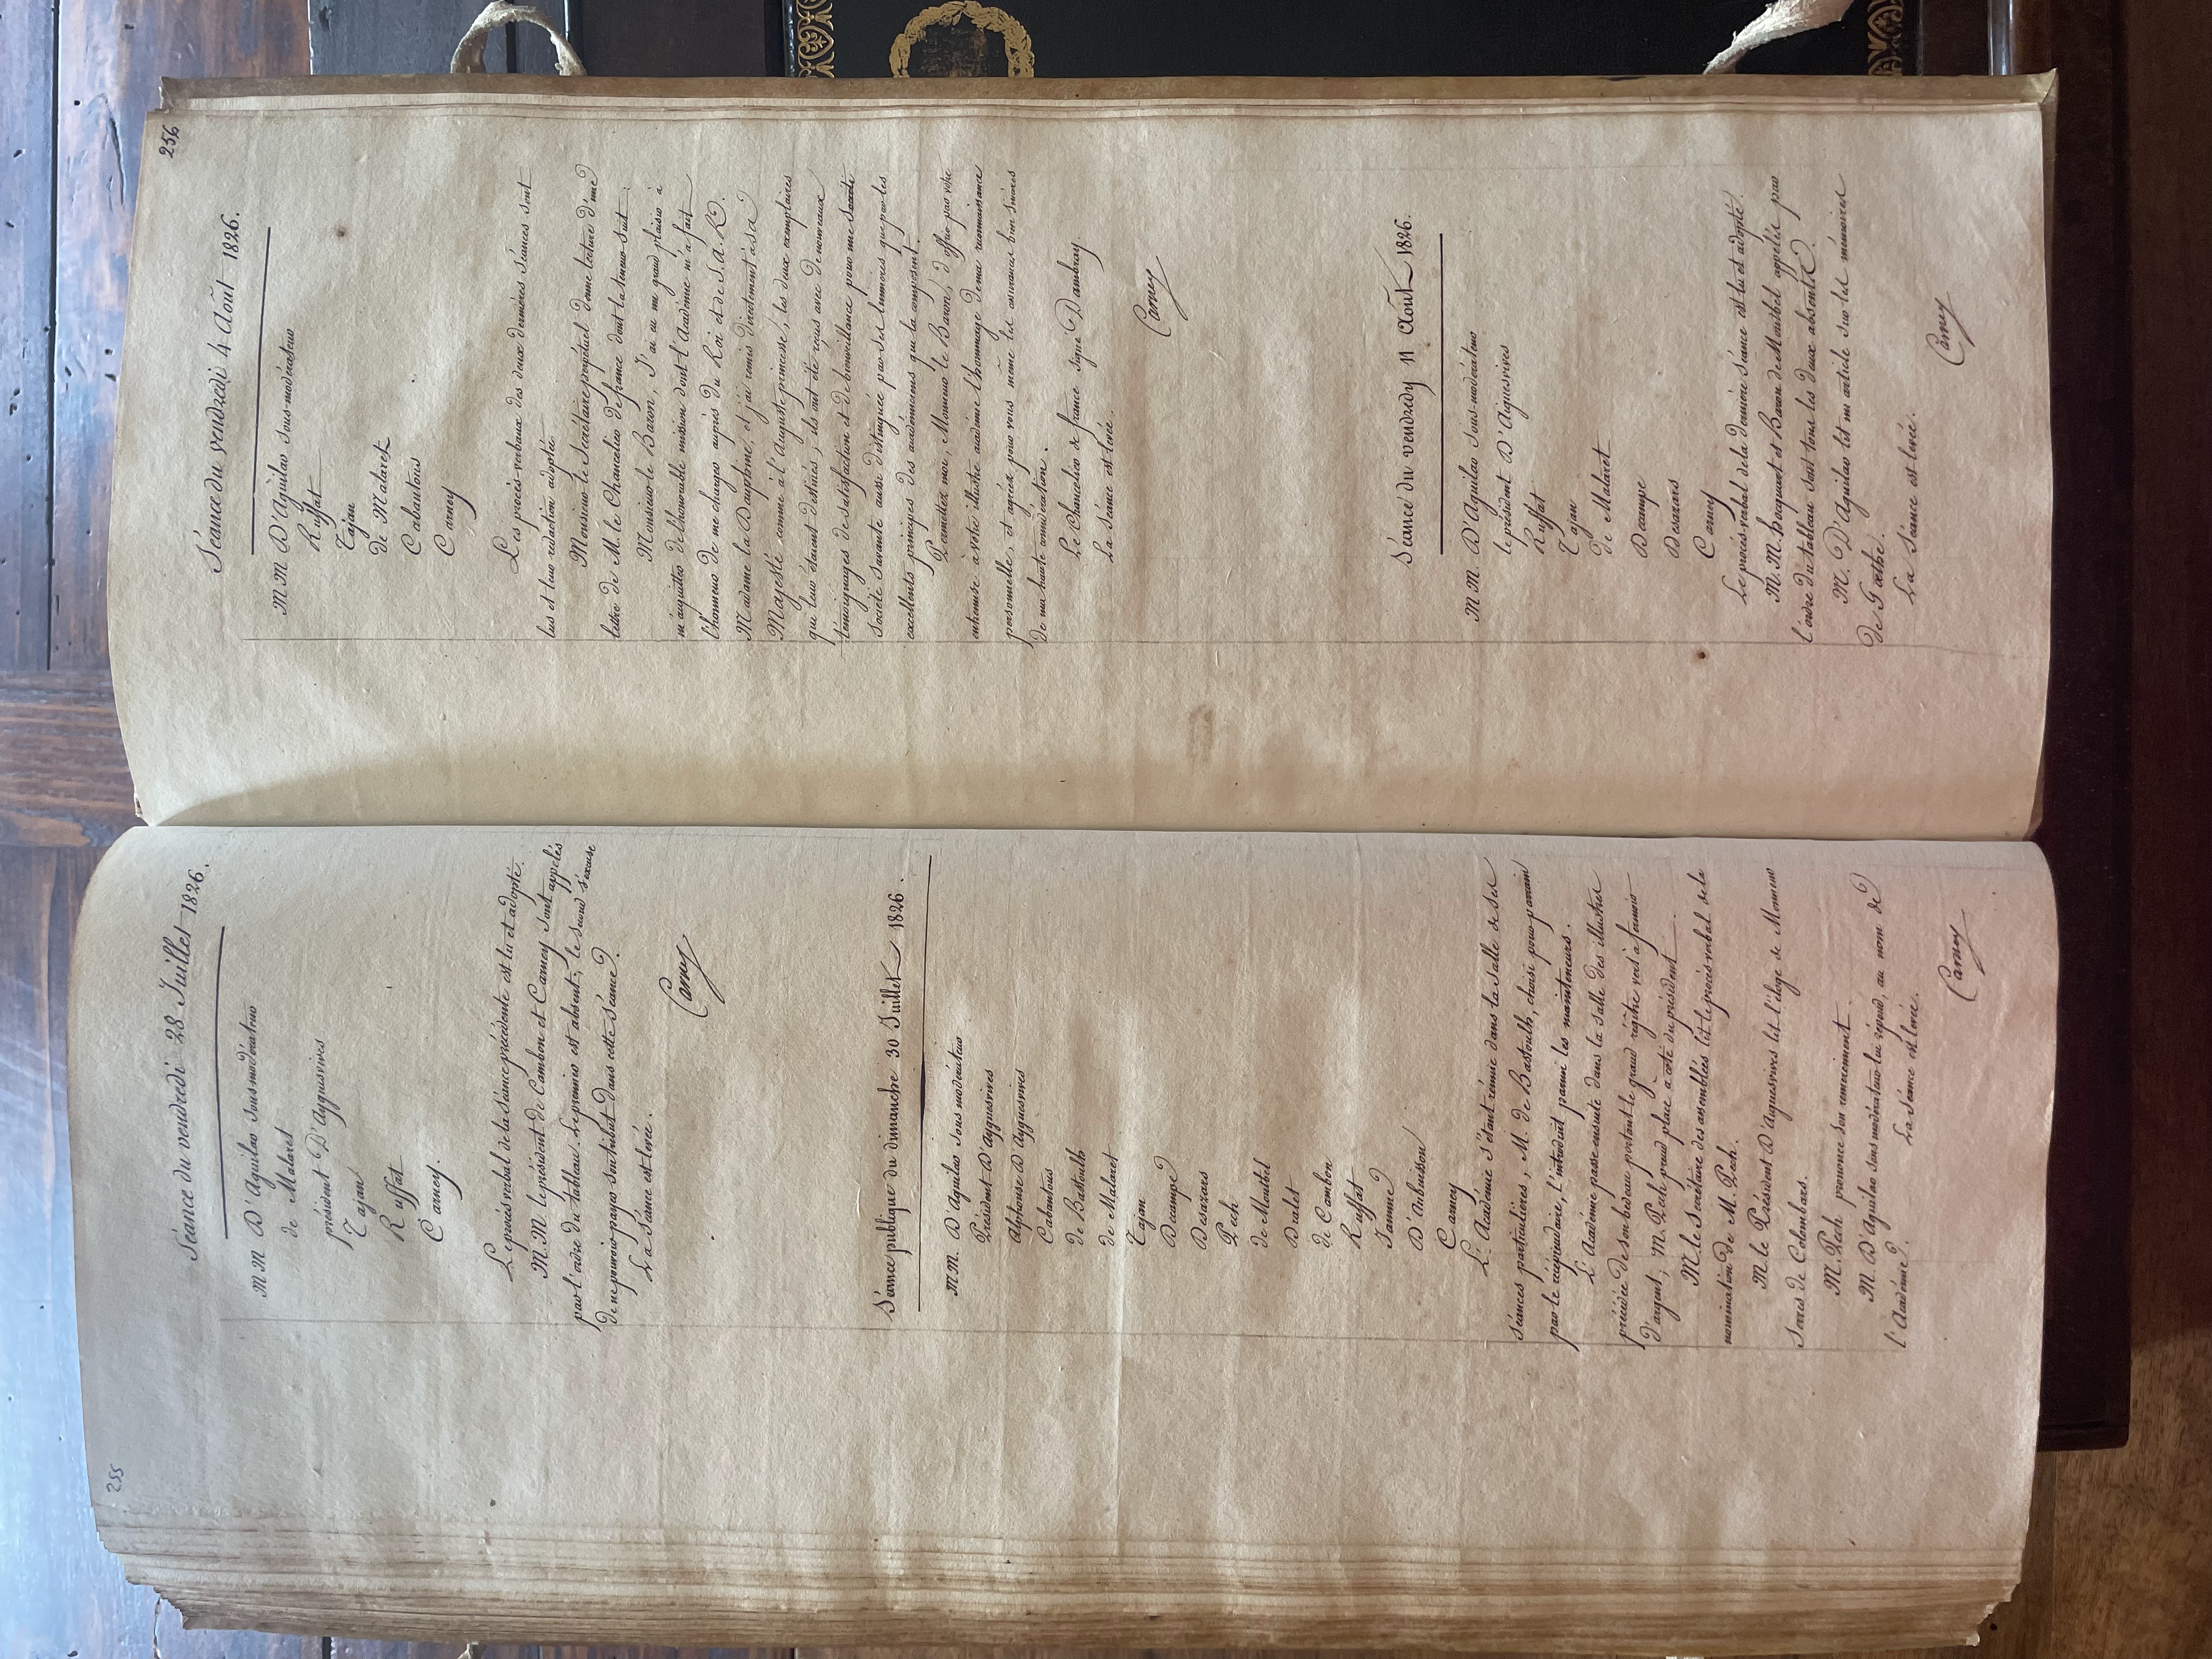 255
Séance du vendredi 28 Juillet 1826.
MM D'Aguilar Sous-modérateur
de Malaret
président D'Ayguesvives
Tajan
Ruffat
Carney.
Le procès verbal de la séance précédente est lu et adopté.
M.M. le président de Cambon et Carney sont appelés
par l'ordre du tableau. Le premier est absent; le second s'excuse
de ne pouvoir payer son tribut dans cette séance.
La séance est levée.
Carney
Séance publique du dimanche 30 Juillet 1826.
MM. D'Aguilar Sous modérateur
Président D'Ayguesvives
Alphonse D'Ayguesvives
Cabantous
de Bastoulh
de Malaret
Tajan
Decampe
Desazars
Pech
de Montbel
Dralet
de Cambon
Ruffat
Jamme
D'Aubuisson
Carney
L'Académie s'étant réunie dans la salle de ses
séances particulières, M. de Bastoulh, choisi pour parrain
par le récipiendaire, l'introduit parmi les mainteneurs.
L'Académie passe ensuite dans la salle des illustres
précédée de son bedeau portant le grand registre vers à fermoir
d'argent; M. Pech prend place à côté du président.
M. le Secrétaire des assemblées lit le procès verbal de la
nomination de M. Pech.
M. le Président D'Aiguesvives lit l'éloge de Monsieur
Serres de Colombars.
M. Pech prononce son remerciement.
M. D'Aguilar Sous modérateur lui répond, au nom de
l'Académie.
La Séance est levée.
Carney
256
Séance du vendredi 4 Août 1826.
MM D'Aguilar Sous-modérateur
Ruffat
Tajan
de Malaret
Cabantous
Carney
Les procès-verbaux des deux dernières séances sont
lus et leur rédaction adoptée.
Monsieur le Secrétaire perpétuel donne lecture d'une
lettre de M. le Chancelier de france dont la teneur suit.
Monsieur le Baron, J'ai eu un grand plaisir à
m'acquitter de l'honorable mission dont l'Académie m'a fait
l'honneur de me charger auprès du Roi et de S.A.R.
Madame la Dauphine, et j'ai remis directement à sa
Majesté comme à l'Auguste princesse, les deux exemplaires
qui leur étaient destinés; ils ont été reçus avec de nouveaux
témoignages de satisfaction et de bienveillance pour une Société
Société Savante aussi distinguée par ses lumières que par les
excellents principes des académiciens qui la composent.
Permettez moi, Monsieur le Baron, d'offrir par votre
entremise à votre illustre académie l'hommage de ma reconnaissance
personnelle, et agréez pour vous même les assurances bien sincères
de ma haute considération.
Le Chancelier de france signé Dambray.
La Séance est levée.
Carney
Séance du vendredy 11 Août 1826.
MM. D'Aguilar Sous-modérateur
le président D'Aiguesvives
Ruffat
Tajan
de Malaret
Decampe
Desazars
Carney
Le procès verbal de la dernière séance est lu et adopté.
M.M. Hocquart et Baron de Montbel appelés par
l'ordre du tableau sont tous les deux absents.
M. D'Aguilar lit un article sur les mémoires
de Gœthe.
La Séance est levée.
Carney